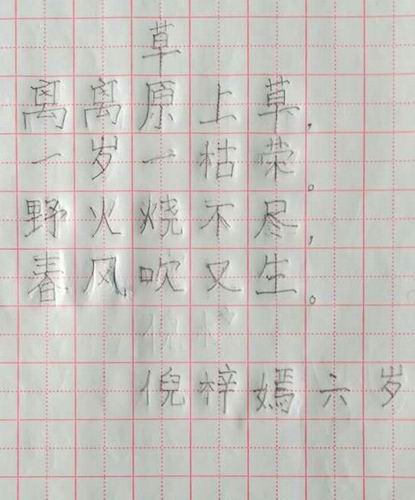 草
离离原上草，
一岁一枯荣。
野火烧不尽，
春风吹又生。
倪梓嫣六岁